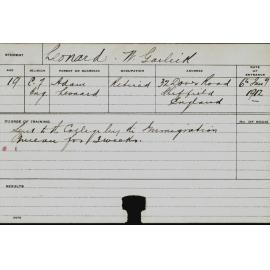 STUDENT Leonard W Garlick
AGE RELIGION PARENT OR GUARDIAN OCCUPATION ADDRESS DATE OF ENTRANCE
19 C of Adam Retired 32 Road 6th Jan
Eng Leonard Sheffield 1912
England
DEGREE OF TRAINING NO. OF ROOM
Sent to the College by the Immigration
Bureau for 3 weeks.
RESULTS
DATE